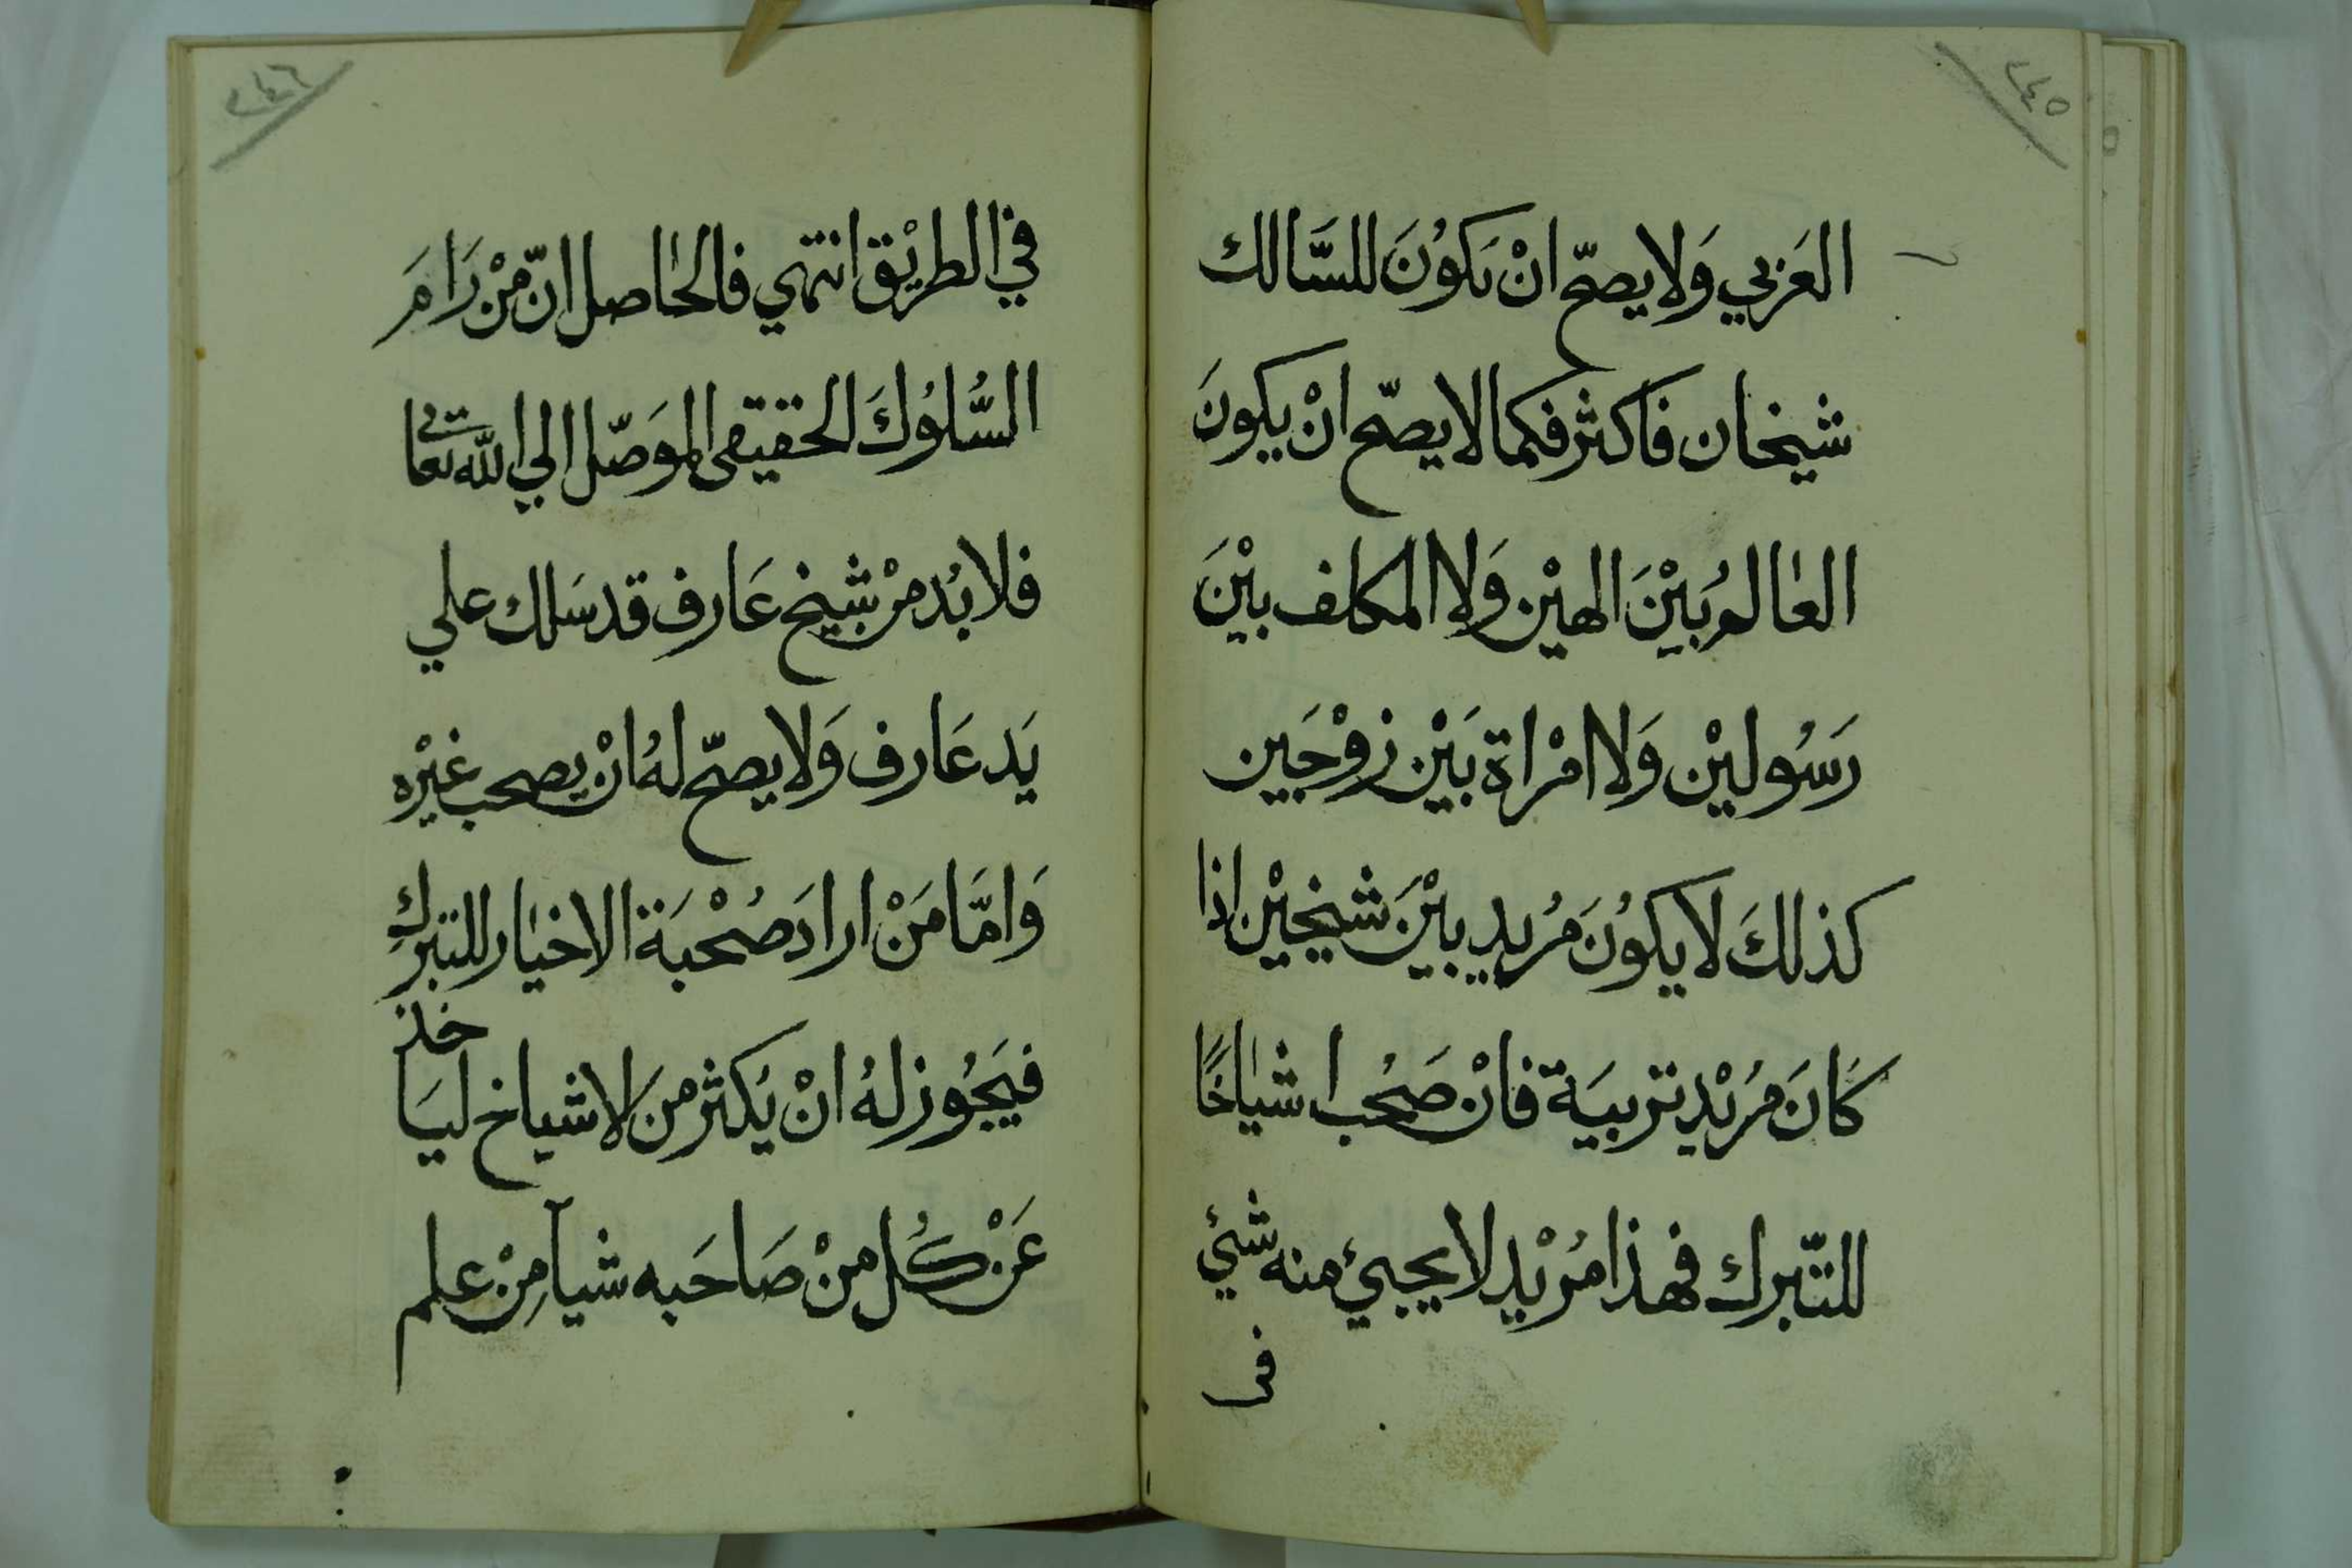 ٢٤٥
العَربي وَلا يصحّ انْ يَكوُنَ للسَّالك
شيخان فَاكثر فكما لا يصحّ انْ يكونَ
العٰالمُ بَيْنَ الهيْن وَلا المكلف بيْنَ
رَسُوليْن وَلا امْراة بَيْن زوْجَين
كذلكَ لا يكوُنَ مُريد بيْنَ شيخيْن اذا
كَانَ مُريْد تربيَة فانْ صَحُب اشيٰاخًا
للتّبرك فهذا مُريْد لا يجيئ منه شيئ
فى
٢٤٦
في الطريْق انتهي فالحٰاصل انّ مْنْ رَامَ
السُّلوُكَ الحقيقى الموَصّل الي اللّه تعالى
فلا بُد منْ شيخ عَارف قد سَلك علي
يَد عَارف وَلا يصحّ لهُ انْ يصحب غيْره
وَامّا مَنْ ارادَ صُحْبَة الاخيٰار للتبركِ
فيَجُوز لهُ انْ يَكثر منَ الاشياخ ليَاخذ
عَنْ كُل منْ صَاحَبه شيآ مِنْ علم